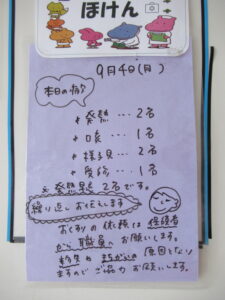 ほけん
9月4日(月)
本日の病欠
発熱…2名
口哀…1名
様子見…2名
受診…1名
発熱児も2名です。
繰り返しお伝えします
お薬の依頼は保護者
から職員へお願いします。
紛失や まちがいの 原因となり
ますので ご協力お願いします。